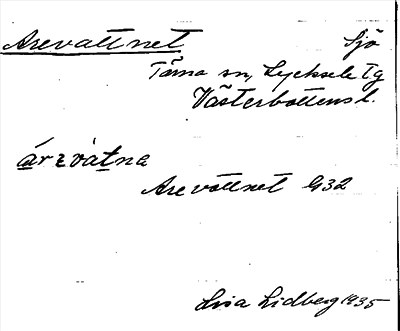 Arevattnet Sjö
Tärna sn, Lycksele tg
Västerbottens l.
árɛvàtna
Arevattnet G32
Lisa Lidberg 1935